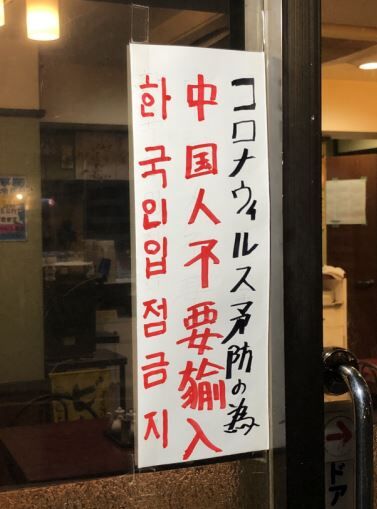 コロナウィルス矛防の為
中国人不要輸入
한국인입점금지
ドア